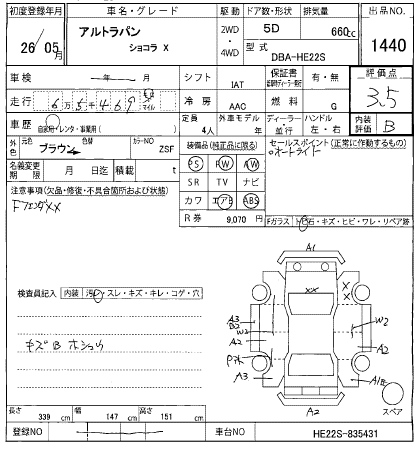 初度登録年月 車名・グレード 駆動 ドア数・形状 排気量 出品NO.
26/05月 アルトラパン ショコラ X 2WD・4WD 5D 660cc 1440
型式 DBA-HE22S
車検 年 月 シフト IAT 保証書 有・無 評価点 3.5
走行 6万5千469 マイル 冷房 AAC 燃料 G
車歴 自家用・レンタ・事業用( ) 定員 4人 外車モデル 年 ディーラー・並行 ハンドル 左・右 内装評価 B
外色 元色 ブラウン 色替 カラーNO ZSF 装備品(純正品に限る) セールスポイント(正常に作動するもの)
オートライト
名義変更期限 月 日迄 積載 t PS PW AW
注意事項(欠品・修復・不具合箇所および状態) SR TV ナビ
FフェンダXX カワ エアB ABS
R券 9,070円 Fガラス トビ石・キズ・ヒビ・ワレ・リペア跡
検査員記入 内装 汚・スレ・キズ・キレ・コゲ・穴
キズB ホシュウ
A1
XX
X
X
A3
B2
W2
A2
W2
A2
A3
A2
スペア
長さ 339cm 幅 147cm 高さ 151cm
登録NO 車台NO HE22S-835431